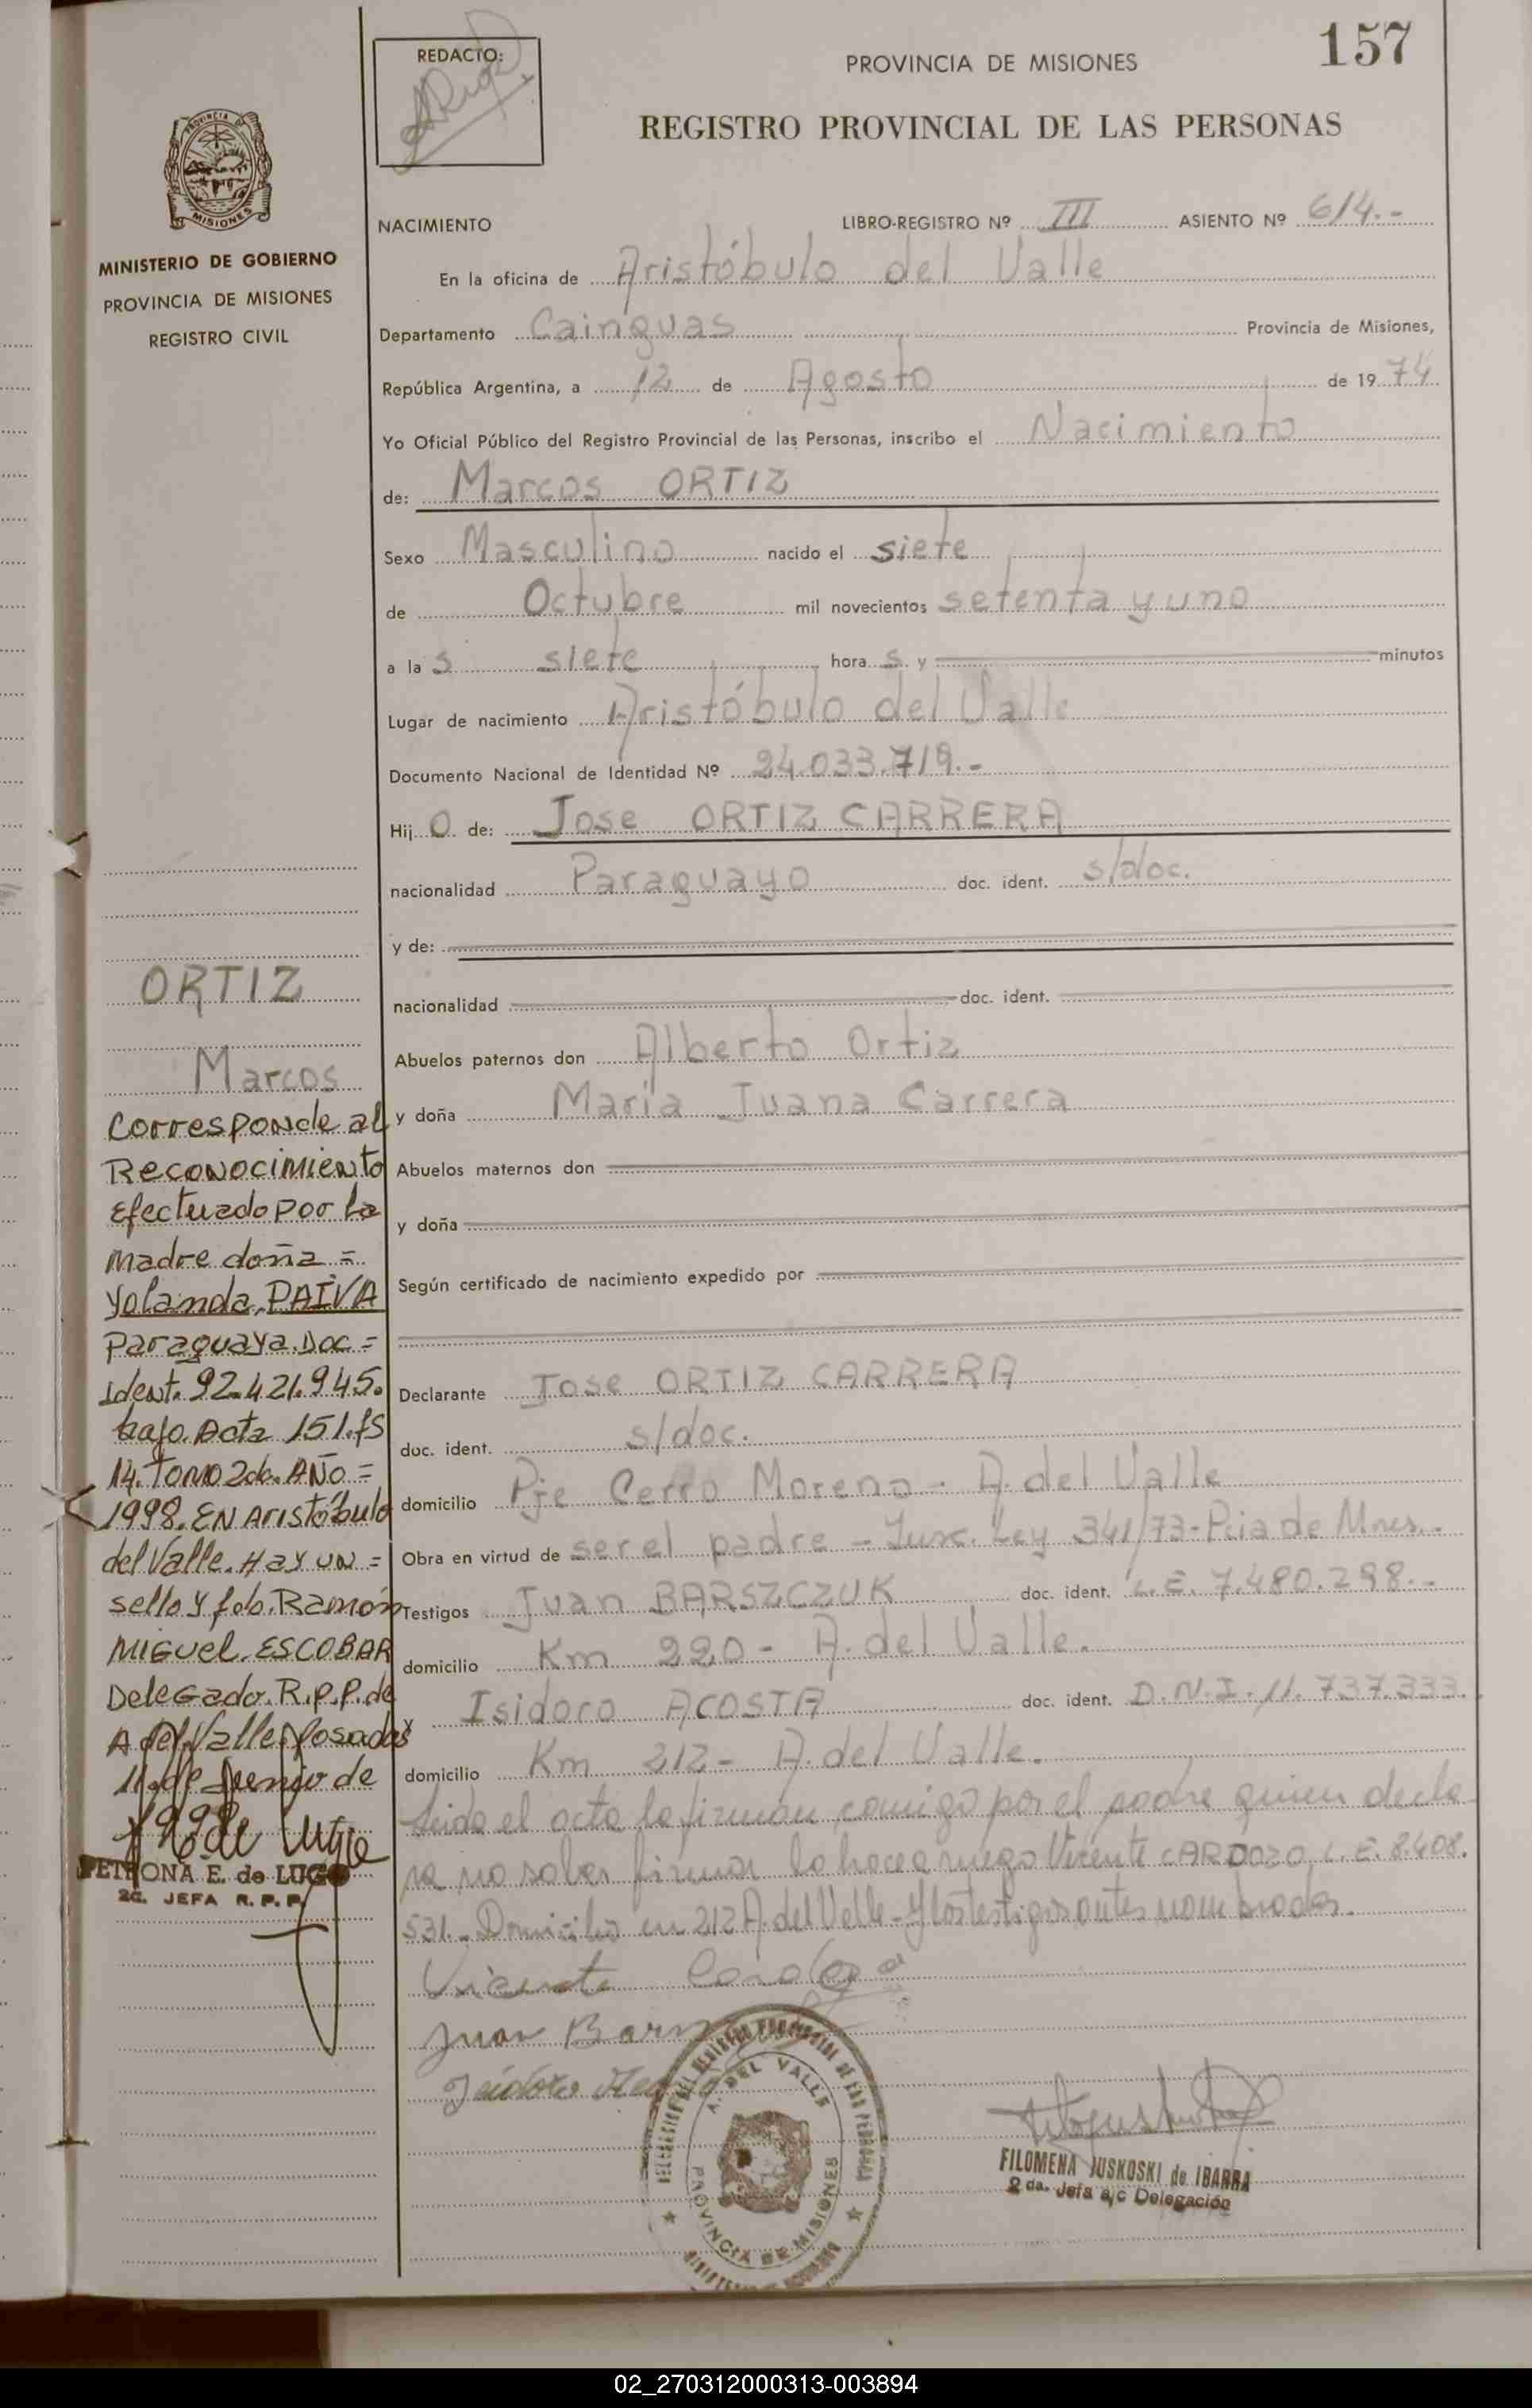 157
REDACTO:
PROVINCIA DE MISIONES
REGISTRO PROVINCIAL DE LAS PERSONAS
MISIONES
MINISTERIO DE GOBIERNO
PROVINCIA DE MISIONES
REGISTRO CIVIL
NACIMIENTO LIBRO-REGISTRO Nº III ASIENTO Nº 614.-
En la oficina de Aristóbulo del Valle
Departamento Cainguas Provincia de Misiones,
República Argentina, a 12 de Agosto de 1974
Yo Oficial Público del Registro Provincial de las Personas, inscribo el Nacimiento
de: Marcos ORTIZ
Sexo Masculino nacido el siete
de Octubre mil novecientos setenta y uno
a la s siete hora s y minutos
Lugar de nacimiento Aristóbulo del Valle
Documento Nacional de Identidad Nº 24.033.719.-
Hijo de: Jose ORTIZ CARRERA
nacionalidad Paraguayo doc. ident. s/doc.
y de:
nacionalidad doc. ident.
Abuelos paternos don Alberto Ortiz
y doña Maria Juana Carrera
Abuelos maternos don
y doña
Según certificado de nacimiento expedido por
Declarante Jose ORTIZ CARRERA
doc. ident. s/doc.
domicilio Pje Cerro Moreno - A. del Valle
Obra en virtud de ser el padre - Ley 341/73 - Pcia de Mnes.-
Testigos Juan BARSZCZUK doc. ident. L.E. 7.480.298.-
domicilio Km 220 - A. del Valle.
y Isidoro ACOSTA doc. ident. D.N.I. 11.737.333.
domicilio Km 212 - A. del Valle.
Leida el acta la firman comigo por el padre quien decla
ra no saber firmar lo hace a ruego Vicente CARDOZO L.E. 8.408.
531.- Domicilio en 212 A. del Valle - Y los testigos antes nombrados.
Vicente
Juan
Isidoro
ORTIZ
Marcos
Corresponde al
Reconocimiento
Efectuado por la
Madre doña =
Yolanda PAIVA
Paraguaya. Doc =
Ident. 92.421.945.
bajo. Acta 151. fs
14. Tomo 2do. AÑO =
1998. EN Aristóbulo
del Valle. Hay un =
sello y fdo. Ramón
MIGUEL ESCOBAR
Delegado. R.P.P. de
A. del Valle. Posadas
11. de Junio de
1998
PETRONA E. de LUGO
2a. JEFA R. P. P.
DELEGACION DEL REGISTRO PROVINCIAL DE LAS PERSONAS
A. DEL VALLE
PROVINCIA DE MISIONES
FILOMENA JUSKOSKI de IBARRA
2 da. Jefa a/c Delegación
02_270312000313-003894